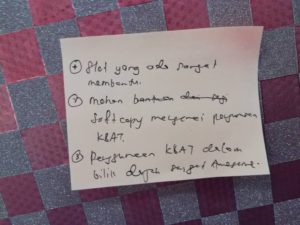 ① Slot yang ada sangat
membantu.
② Mohon bantuan
Softcopy mengenai penggunaan
KBAT.
③ Penggunaan KBAT dalam
bilik darjah sangat